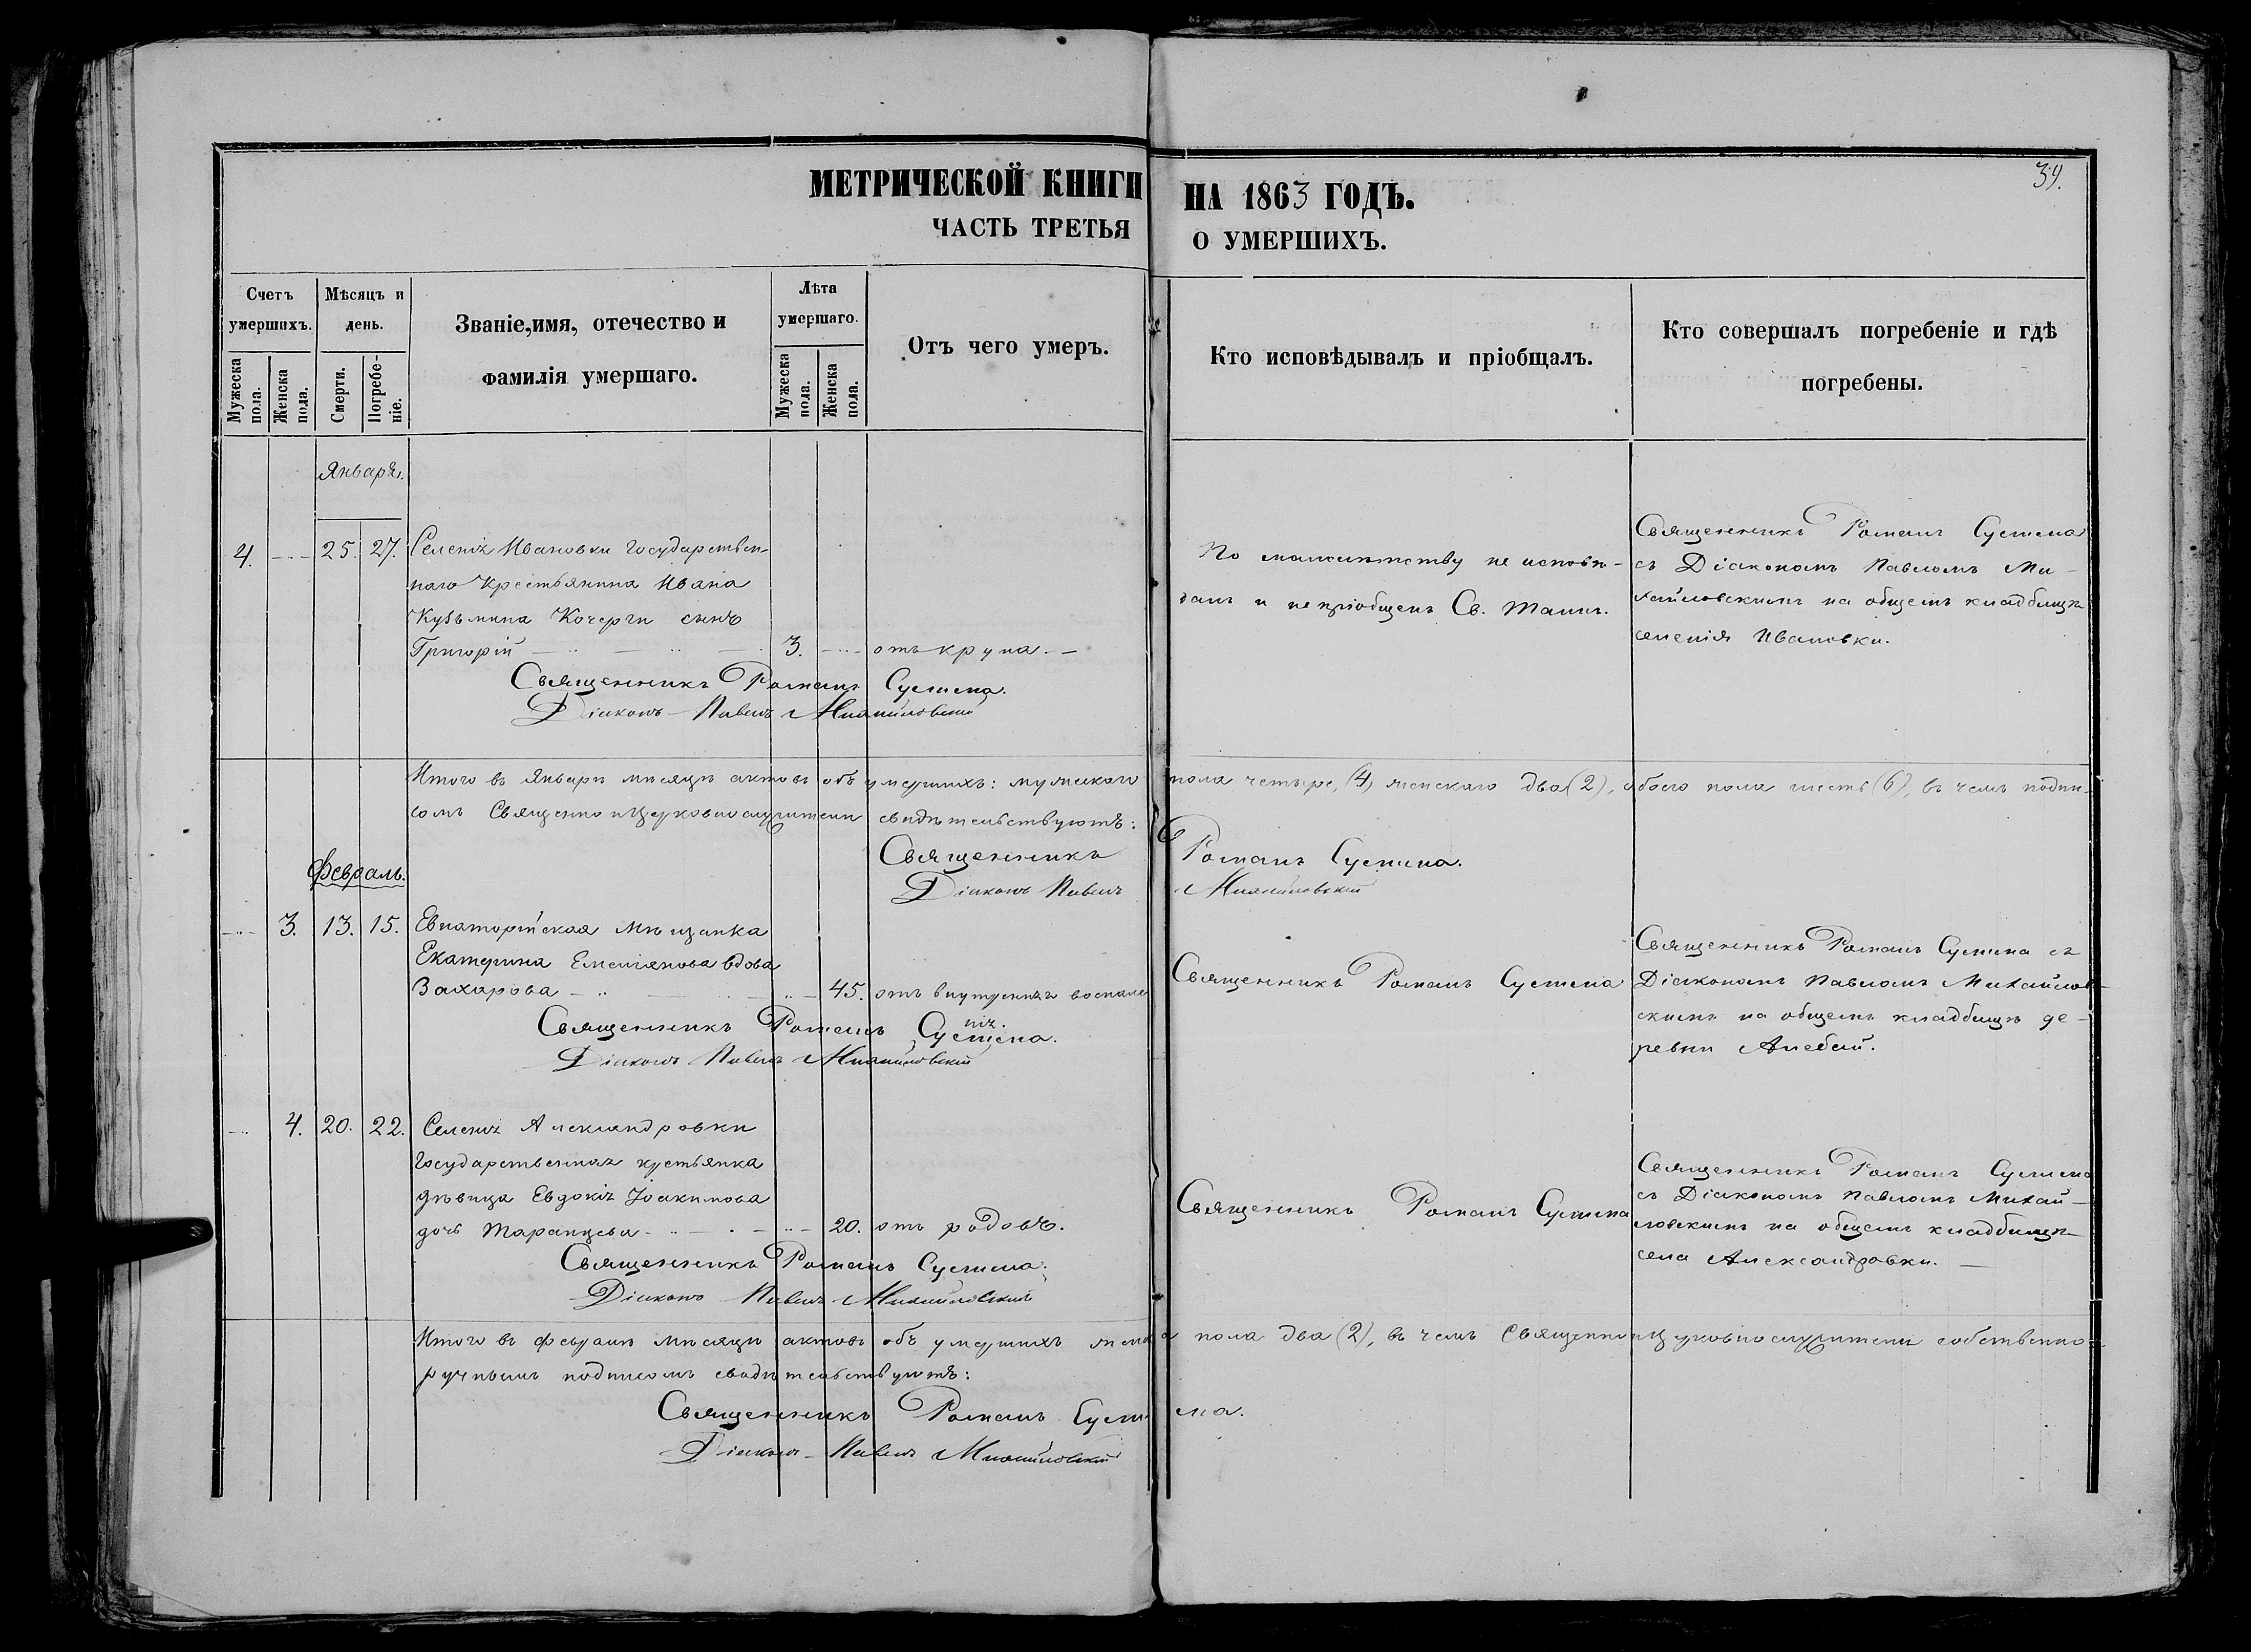 МЕТРИЧЕСКОЙ КНИГИ НА 1863 ГОДЪ.
ЧАСТЬ ТРЕТЬЯ О УМЕРШИХЪ.
39.
Счетъ умершихъ.
Мужеска пола.
Женска пола.
Мѣсяцъ и день.
Смерти.
Погребеніе.
Званіе, имя, отечество и
фамилія умершаго.
Лѣта умершаго.
Мужеска пола.
Женска пола.
Отъ чего умеръ.
Кто исповѣдывалъ и пріобщалъ.
Кто совершалъ погребеніе и гдѣ
погребены.
Январь.
4. 25. 27. Селенія Ивановки Государствен-
наго Крестьянина Ивана
Кузьмина Кочерги сынъ
Григорій 3. отъ крупа.
Священникъ Романъ
Діаконъ Павелъ Михайловскій
По малолѣтству не исповѣ-
данъ и непріобщенъ Св. Таинъ.
Священникъ Романъ
съ Діакономъ Павломъ Ми-
хайловскимъ на общемъ кладбищѣ
селенія Ивановки.
Итого въ Январѣ мѣсяцѣ актовъ объ умершихъ: мужескаго пола четыре, (4) женскаго два (2), обоего пола шесть (6), въ чемъ подпи-
сомъ Священно и Церковнослужители свидѣтельствуютъ:
Священникъ Романъ
Діаконъ Павелъ Михайловскій
Февраль.
3. 13. 15. Евпаторійская Мѣщанка
Екатерина Емеліянова вдова
Захарова 45. отъ внутреннихъ воспале-
нія.
Священникъ Романъ
Діаконъ Павелъ Михайловскій
Священникъ Романъ
Священникъ Романъ съ
Діакономъ Павломъ Михайлов-
скимъ на общемъ кладбищѣ де-
ревни
4. 20. 22. Селенія Александровки
Государственная крестьянка
дѣвица Евдокія Іоакимова
дочь Таранцева 20. отъ родовъ.
Священникъ Романъ
Діаконъ Павелъ Михайловскій
Священникъ Романъ
Священникъ Романъ
съ Діакономъ Павломъ Михай-
ловскимъ на общемъ кладбищѣ
села Александровки.
Итого въ февралѣ мѣсяцѣ актовъ объ умершихъ пола два (2), въ чемъ Священно и Церковнослужители собственно-
ручнымъ подписомъ свидѣтельствуютъ:
Священникъ Романъ
Діаконъ Павелъ Михайловскій